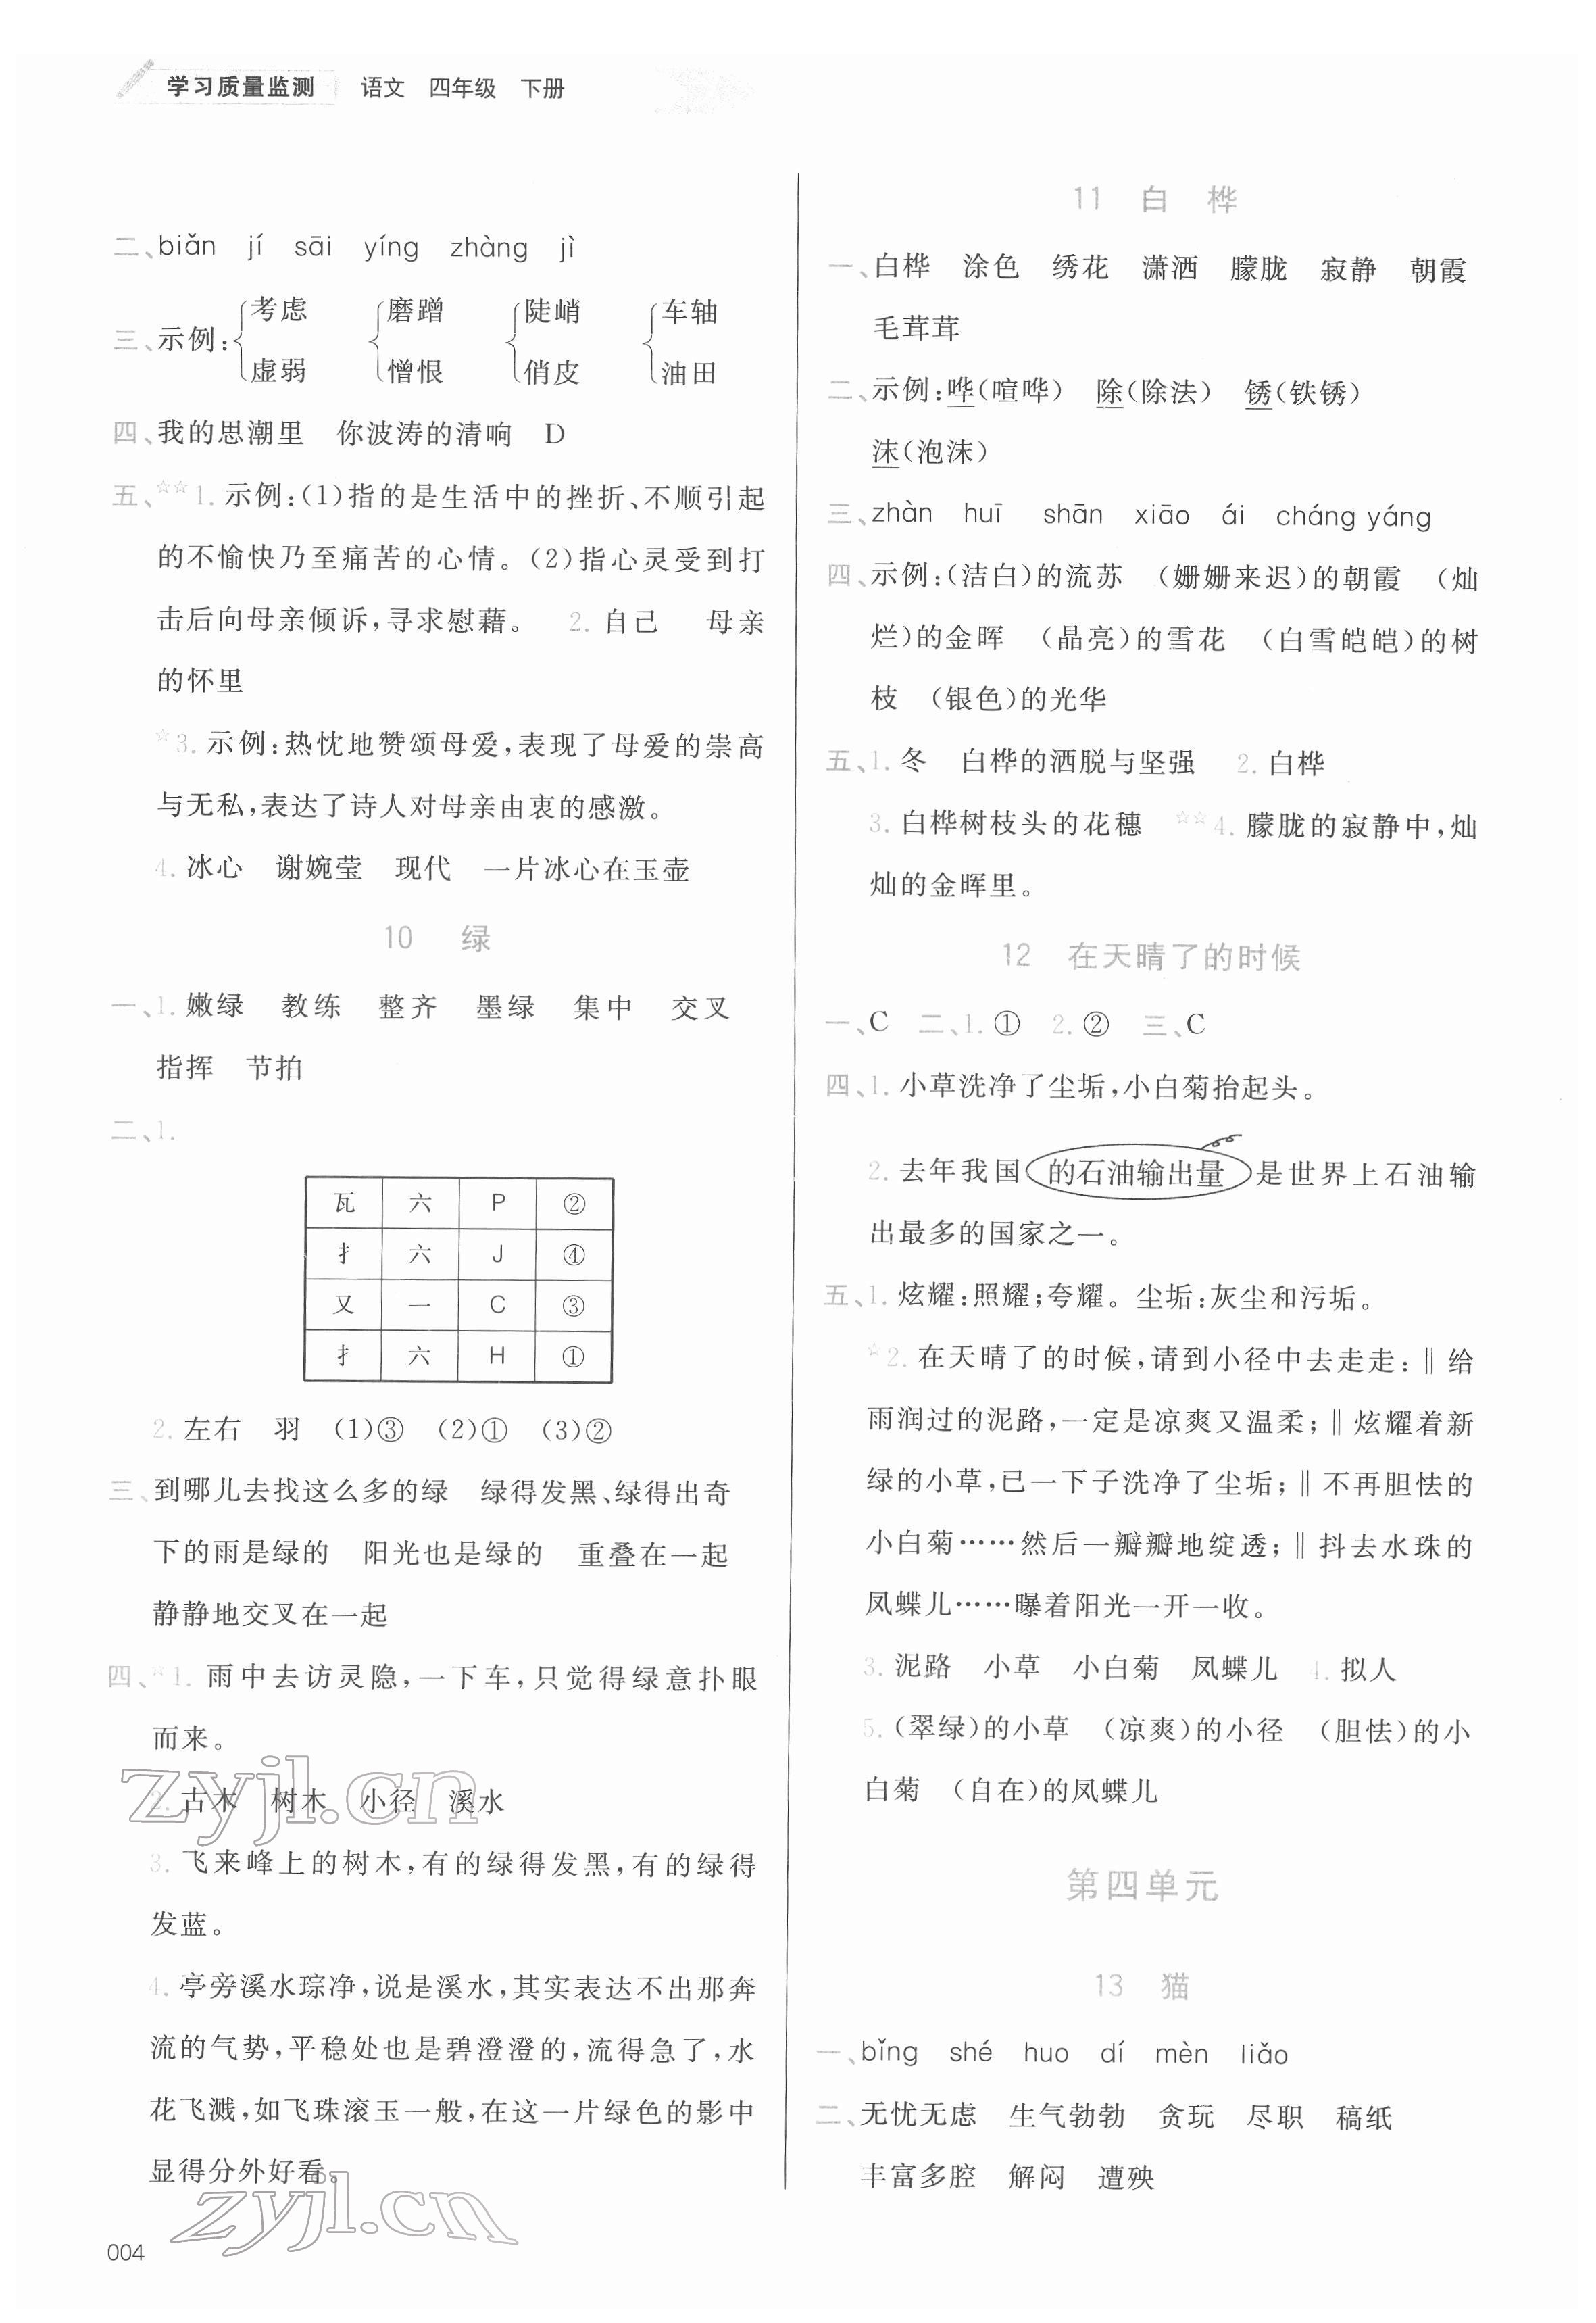 学习质量监测 语文 四年级 下册
二、biǎn jí sāi yíng zhàng jì
三、示例:{考虑 虚弱 {磨蹭 憎恨 {陡峭 俏皮 {车轴 油田
四、我的思潮里 你波涛的清响 D
五、☆☆1. 示例:(1)指的是生活中的挫折、不顺引起
的不愉快乃至痛苦的心情。(2)指心灵受到打
击后向母亲倾诉,寻求慰藉。 2. 自己 母亲
的怀里
☆3. 示例:热忱地赞颂母爱,表现了母爱的崇高
与无私,表达了诗人对母亲由衷的感激。
4. 冰心 谢婉莹 现代 一片冰心在玉壶
10 绿
一、1. 嫩绿 教练 整齐 墨绿 集中 交叉
指挥 节拍
二、1.
瓦 六 P ②
扌 六 J ④
又 一 C ③
扌 六 H ①
2. 左右 羽 (1)③ (2)① (3)②
三、到哪儿去找这么多的绿 绿得发黑、绿得出奇
下的雨是绿的 阳光也是绿的 重叠在一起
静静地交叉在一起
四、☆1. 雨中去访灵隐,一下车,只觉得绿意扑眼
而来。
2. 古木 树木 小径 溪水
3. 飞来峰上的树木,有的绿得发黑,有的绿得
发蓝。
4. 亭旁溪水琮净,说是溪水,其实表达不出那奔
流的气势,平稳处也是碧澄澄的,流得急了,水
花飞溅,如飞珠滚玉一般,在这一片绿色的影中
显得分外好看。
zyjl.cn
zyjl.cn
004
11 白 桦
一、白桦 涂色 绣花 潇洒 朦胧 寂静 朝霞
毛茸茸
二、示例:哗(喧哗) 除(除法) 锈(铁锈)
沫(泡沫)
三、zhàn huī shān xiāo ái cháng yáng
四、示例:(洁白)的流苏 (姗姗来迟)的朝霞 (灿
烂)的金晖 (晶亮)的雪花 (白雪皑皑)的树
枝 (银色)的光华
五、1. 冬 白桦的洒脱与坚强 2. 白桦
3. 白桦树枝头的花穗 ☆☆4. 朦胧的寂静中,灿
灿的金晖里。
12 在天晴了的时候
一、C 二、1. ① 2. ② 三、C
四、1. 小草洗净了尘垢,小白菊抬起头。
2. 去年我国的石油输出量是世界上石油输
出最多的国家之一。
五、1. 炫耀:照耀;夸耀。尘垢:灰尘和污垢。
☆2. 在天晴了的时候,请到小径中去走走:‖给
雨润过的泥路,一定是凉爽又温柔;‖炫耀着新
绿的小草,已一下子洗净了尘垢;‖不再胆怯的
小白菊……然后一瓣瓣地绽透;‖抖去水珠的
凤蝶儿……曝着阳光一开一收。
3. 泥路 小草 小白菊 凤蝶儿 4. 拟人
5. (翠绿)的小草 (凉爽)的小径 (胆怯)的小
白菊 (自在)的凤蝶儿
第四单元
13 猫
一、bǐng shé huo dí mèn liǎo
二、无忧无虑 生气勃勃 贪玩 尽职 稿纸
丰富多腔 解闷 遭殃